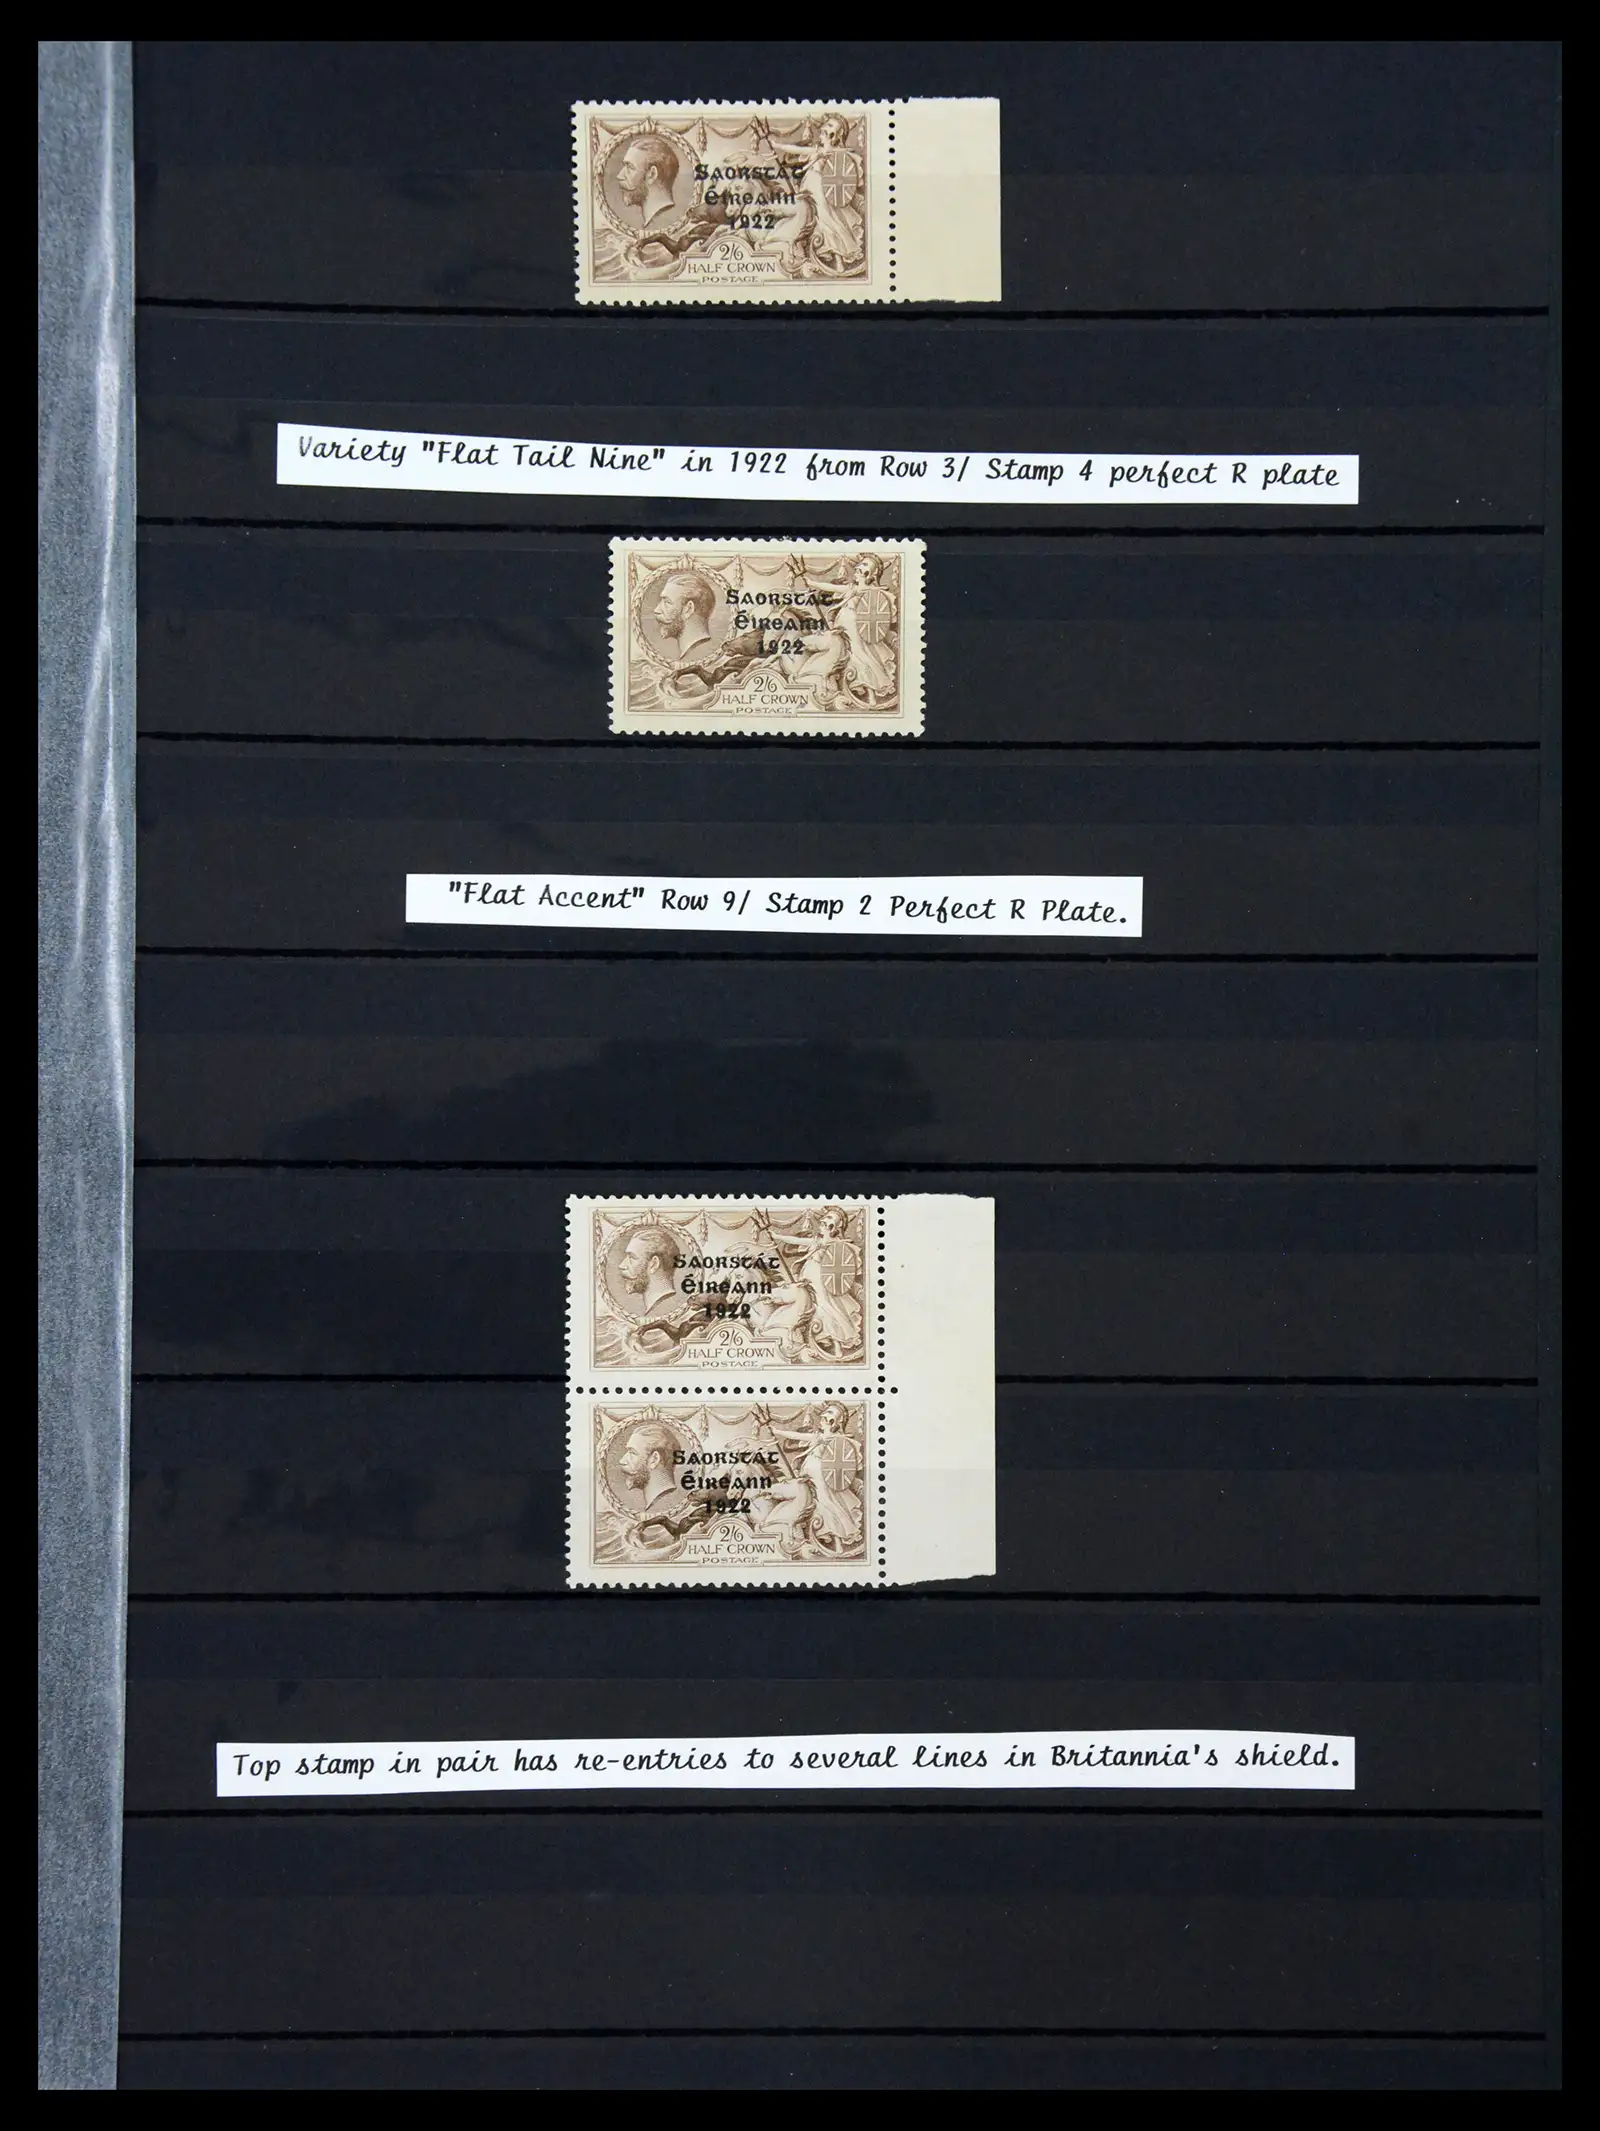 Saorstát
Éireann
1922
2/6
HALF CROWN
POSTAGE
Variety "Flat Tail Nine" in 1922 from Row 3/ Stamp 4 perfect R plate
Saorstát
Éireann
1922
2/6
HALF CROWN
POSTAGE
"Flat Accent" Row 9/ Stamp 2 Perfect R Plate.
Saorstát
Éireann
1922
2/6
HALF CROWN
POSTAGE
Saorstát
Éireann
1922
2/6
HALF CROWN
POSTAGE
Top stamp in pair has re-entries to several lines in Britannia's shield.